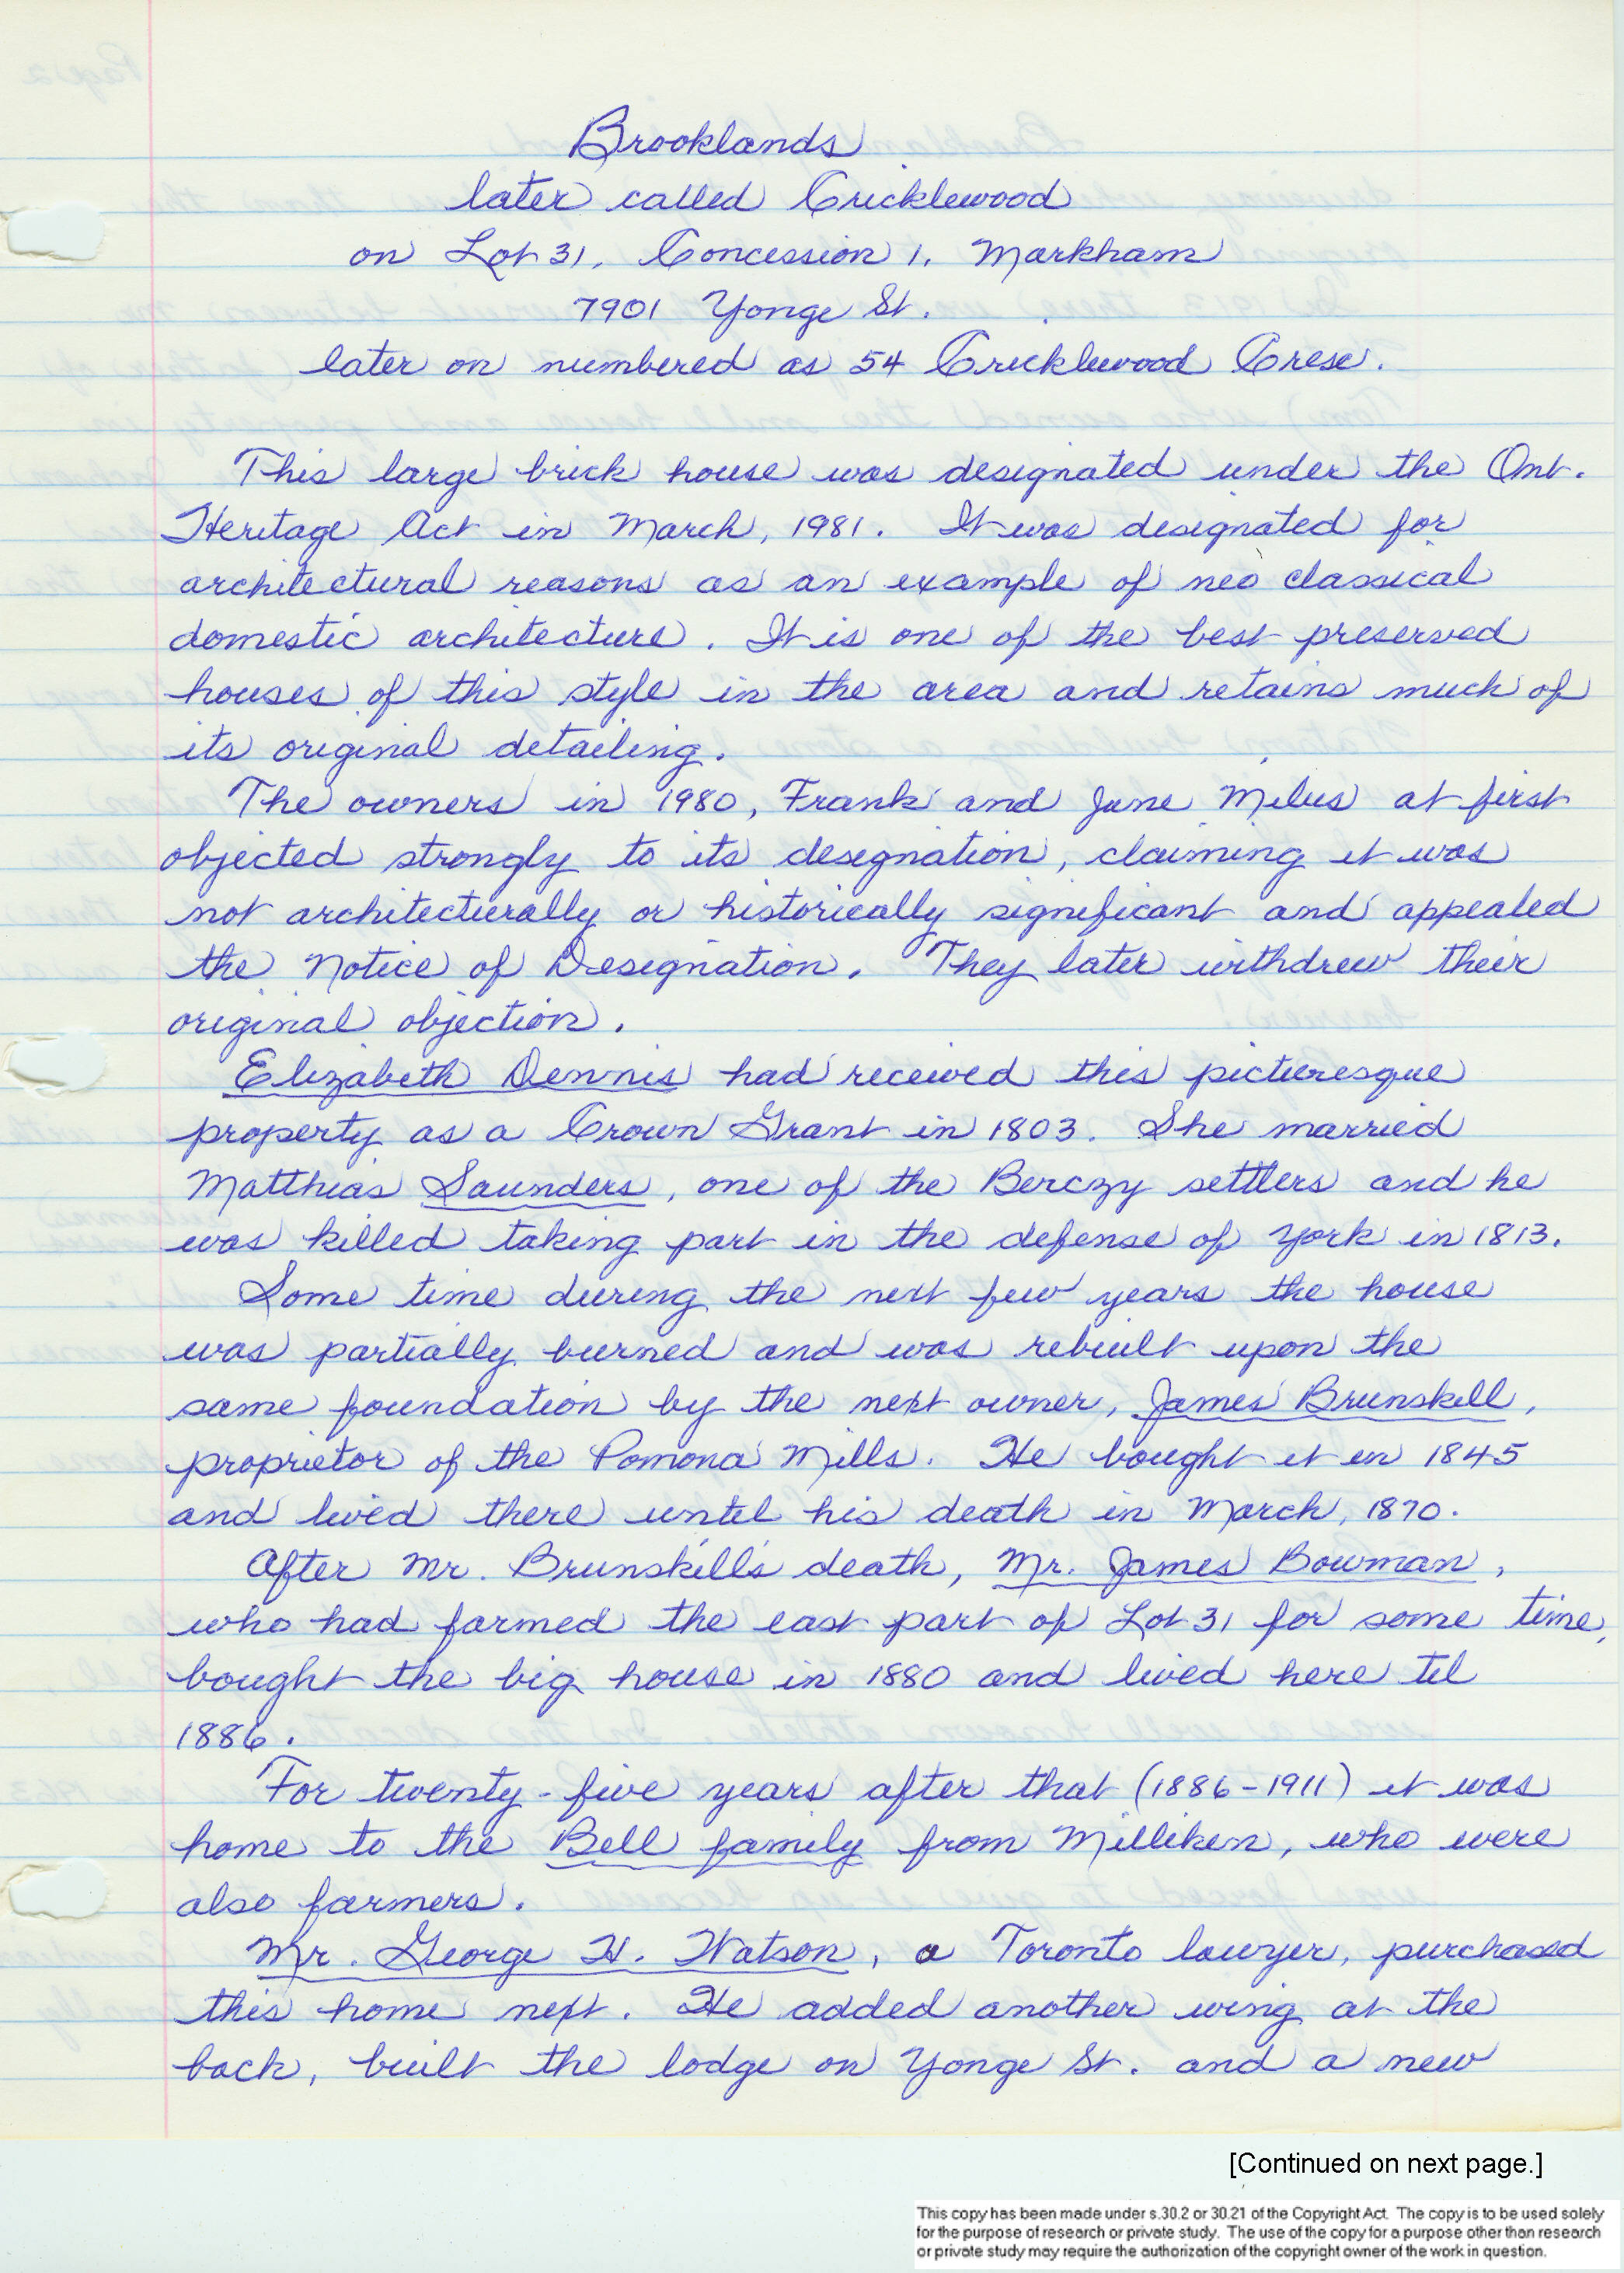 Brooklands
later called Cricklewood
on Lot 31, Concession 1, Markham
7901 Yonge St.
later on numbered as 54 Cricklewood Cresc.
This large brick house was designated under the Ont.
Heritage Act in March, 1981. It was designated for
architectural reasons as an example of neo classical
domestic architecture. It is one of the best preserved
houses of this style in the area and retains much of
its original detailing.
The owners in 1980, Frank and June Milus at first
objected strongly to its designation, claiming it was
not architecturally or historically significant and appealed
the Notice of Designation. They later withdrew their
original objection.
Elizabeth Dennis had received this picturesque
property as a Crown Grant in 1803. She married
Matthias Saunders, one of the Berczy settlers and he
was killed taking part in the defense of York in 1813.
Some time during the next few years the house
was partially burned and was rebuilt upon the
same foundation by the next owner, James Brunskill,
proprietor of the Pomona Mills. He bought it in 1845
and lived there until his death in March, 1870.
After Mr. Brunskill's death, Mr. James Bowman,
who had farmed the east part of Lot 31 for some time,
bought the big house in 1880 and lived here til
1886.
For twenty-five years after that (1886-1911) it was
home to the Bell family from Milliken, who were
also farmers.
Mr. George H. Watson, a Toronto lawyer, purchased
this home next. He added another wing at the
back, built the lodge on Yonge St. and a new
[Continued on next page.]
This copy has been made under s.30.2 or 30.21 of the Copyright Act. The copy is to be used solely
for the purpose of research or private study. The use of the copy for a purpose other than research
or private study may require the authorization of the copyright owner of the work in question.